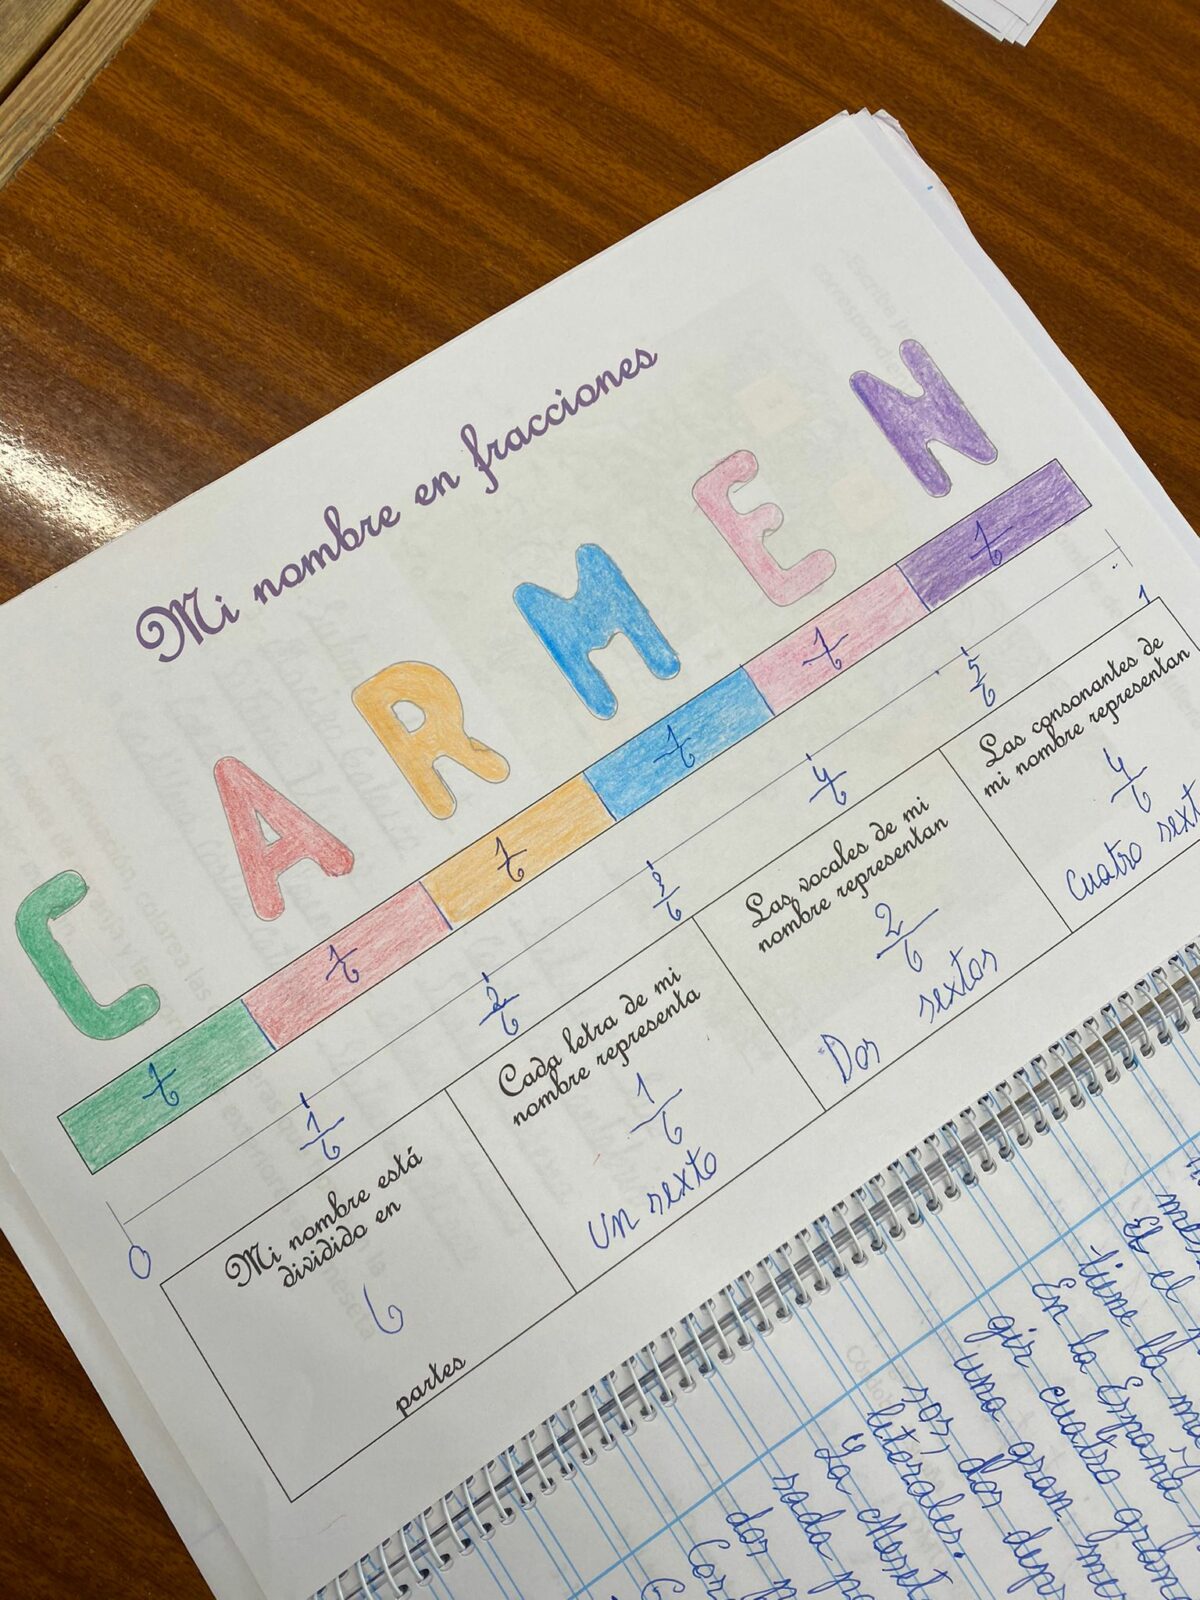 Mi nombre en fracciones
C A R M E N
1/6 1/6 1/6 1/6 1/6 1/6
0 1/6 2/6 3/6 4/6 5/6 1
Mi nombre está
dividido en
6
partes
Cada letra de mi
nombre representa
1/6
Un sexto
Las vocales de mi
nombre representan
2/6
Dos sextos
Las consonantes de
mi nombre representan
4/6
Cuatro sext
Es el
tiene la
En la España
gir cuatro gran
una gran
sos, dos depr
litorales.
La Meset
rada po
dor p
Cor